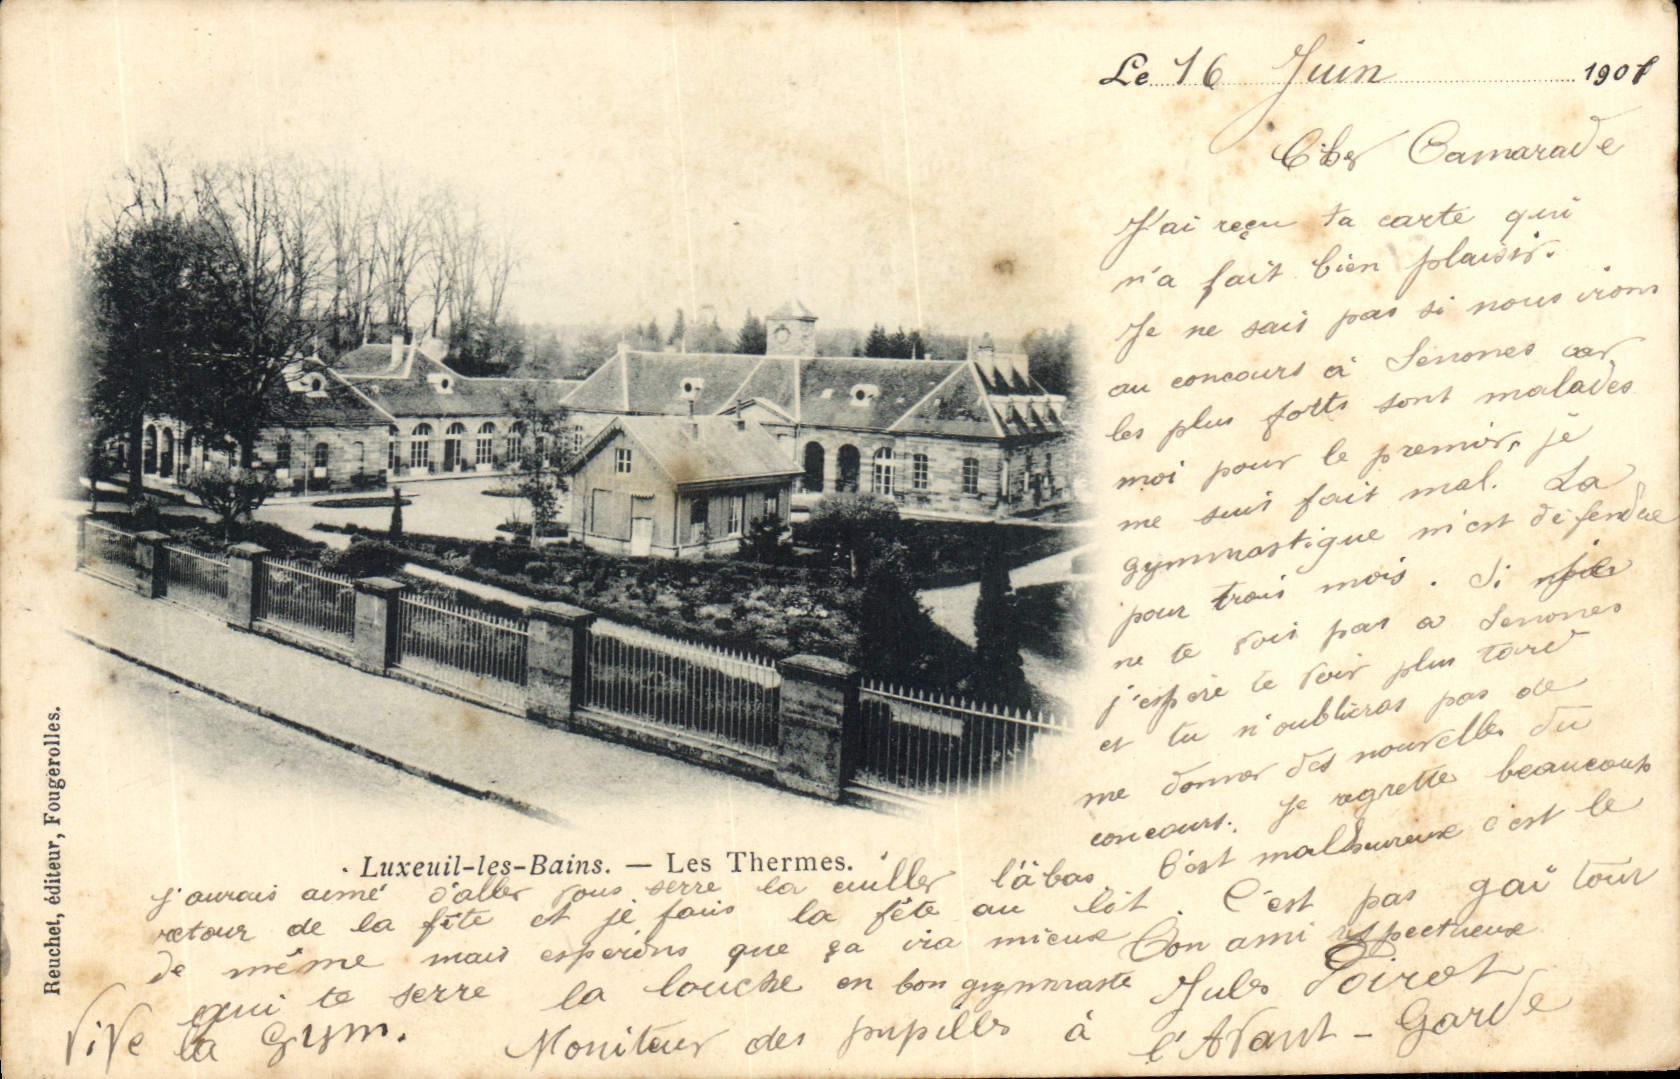 Le 16 Juin 1901
Cher Camarade
J'ai reçu ta carte qui
m'a fait bien plaisir.
Je ne sais pas si nous irons
au concours à Senones car
les plus forts sont malades
moi pour le premier, je
me suis fait mal. La
gymnastique m'est défendue
pour trois mois. Si
ne te vois pas a Senones
j'espère te voir plus tard
et tu n'oublieras pas de
me donner des nouvelles du
concours. Je regrette beaucoup
C'est malheureux c'est le
Luxeuil-les-Bains. — Les Thermes.
j'aurais aimé d'aller vous serre la cuiller làbas
retour de la fête et je fais la fête au lit. C'est pas gai tour
de même mais esperons que ça ira mieux Ton ami respectueux
qui te serre la louche en bon gymnaste Jules Poirot
Vive la Gym. Moniteur des pupilles à l'Avant-Garde
Reuchet, éditeur, Fougerolles.